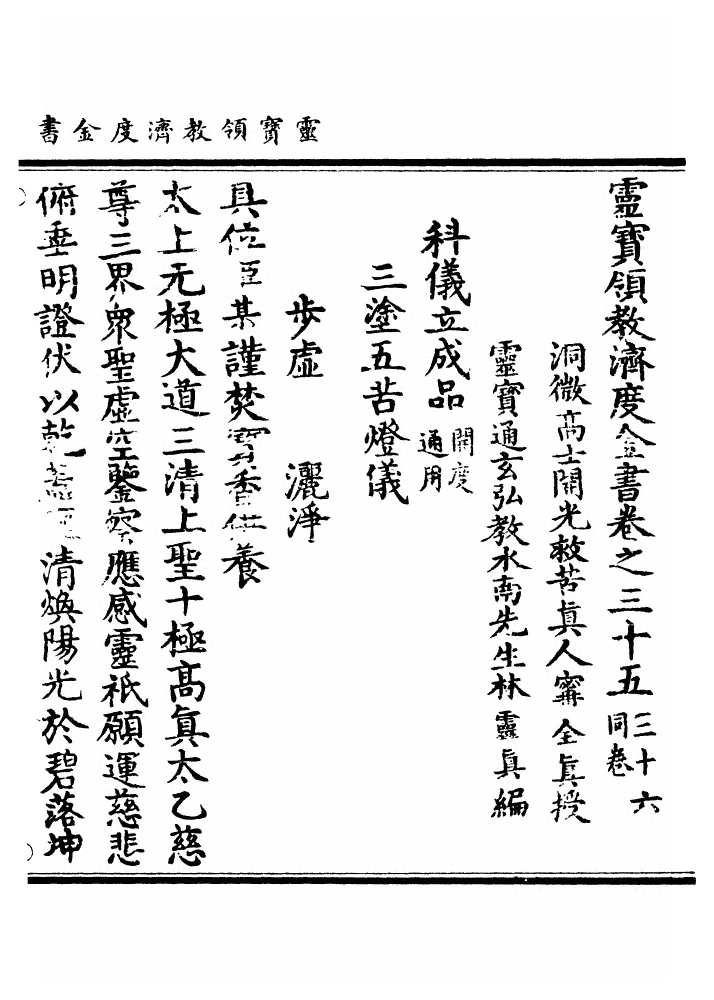 靈寶領教濟度金書
靈寶領教濟度金書卷之三十五三十六同卷
洞微高士開光救苦眞人甯全眞授
靈寶通玄弘教水南先生林靈眞編
科儀立成品開度通用
三塗五苦燈儀
步虛　灑淨
具位臣某謹焚寶香供養
太上无極大道三清上聖十極高眞太乙慈
尊三界衆聖虛空鑒察應感靈祇願運慈悲
俯垂明證伏以乾清煥陽光於碧落坤